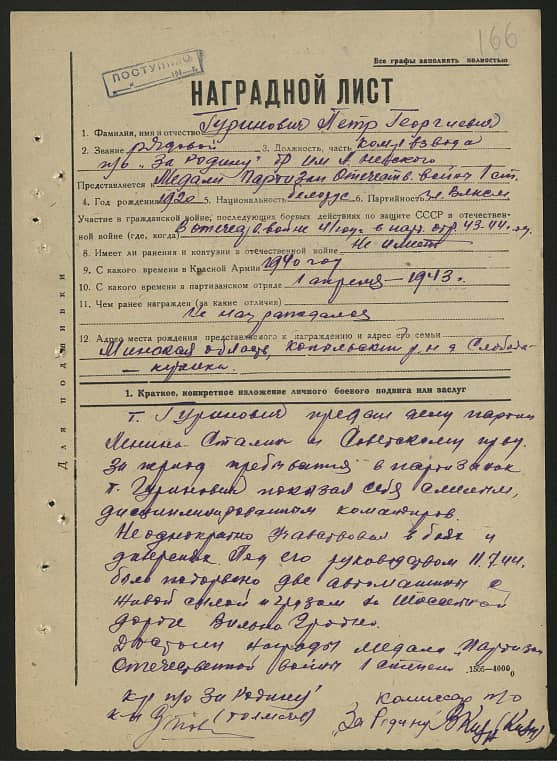 166
Все графы заполнять полностью
ПОСТУПИЛО
НАГРАДНОЙ ЛИСТ
1. Фамилия, имя и отчество Гуринович Петр Георгиевич
2. Звание рядовой 3. Должность, часть ком-р взвода
п/о "За Родину" бр им А невского
Представляется к Медали Партизан Отечеств. войны 1 ст.
4. Год рождения 1920 5. Национальность белорус 6. Партийность чл. Влксм
7. Участие в гражданской войне, последующих боевых действиях по защите СССР и отечествен-
ной войне (где, когда) В отечеств войне 41 году в парт. отр. 43-44
8. Имеет ли ранения и контузии в отечественной войне Не имеет
9. С какого времени в Красной Армии 1940 год
10. С какого времени в партизанском отряде 1 апреля - 1943 г.
11. Чем ранее награжден (за какие отличия)
Не награждался
12. Адрес места рождения представляемого к награждению и адрес его семьи
Минская область, Копыльский р-н д Слобода-
- кучинка
Для подшивки
1. Краткое, конкретное изложение личного боевого подвига или заслуг
т. Гуринович предан делу партии
Ленина-Сталина и Советскому
За период пребывания в партизанах
т. Гуринович показал себя смелым,
дисциплинированным командиром.
Неоднократно участвовал в боях и
диверсиях. Под его руководством 11.7.44.
было подорвано две автомашины с
живой силой и грузом на Шоссейной
дороге Вильно Гродно.
Достоин награды медали "Партизан
Отечественной войны 1 степени
к-р п/о За Родину" комиссар п/о
к-н "За Родину"